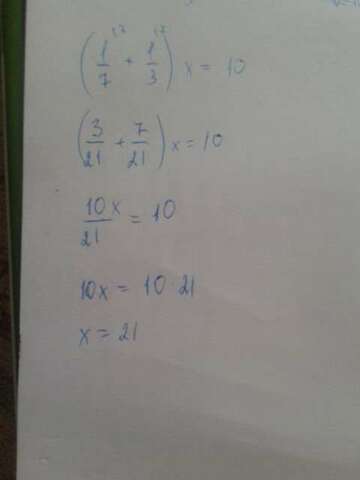 (1/7 + 1/3) x = 10
(3/21 + 7/21) x = 10
10x/21 = 10
10x = 10·21
x = 21